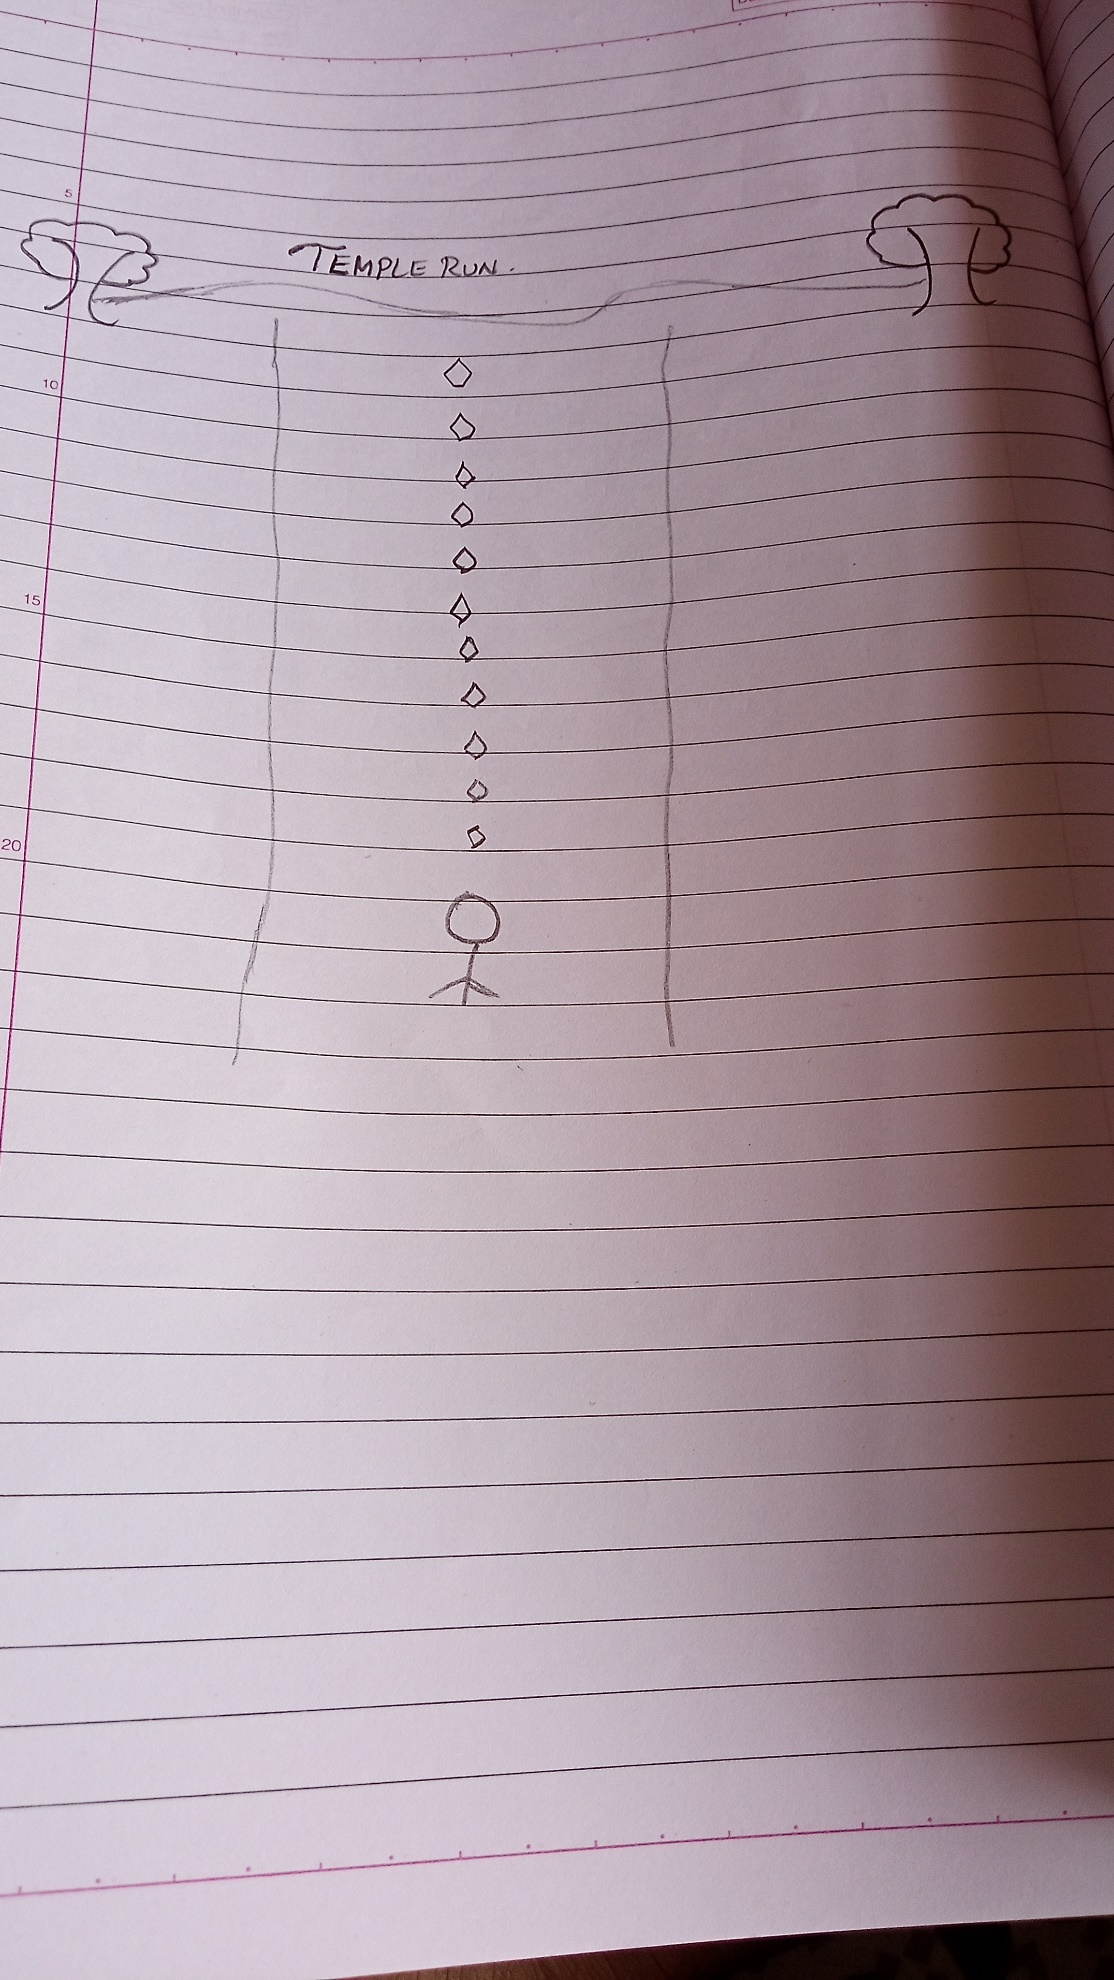 TEMPLE RUN.
5
10
15
20